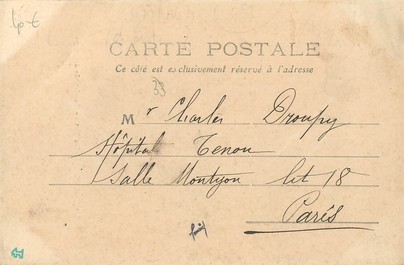 CARTE POSTALE
Ce côté est exclusivement réservé à l'adresse
33
Mr Charles Droupy
Hôpital Tenon
Salle Montyon lit 18
Paris